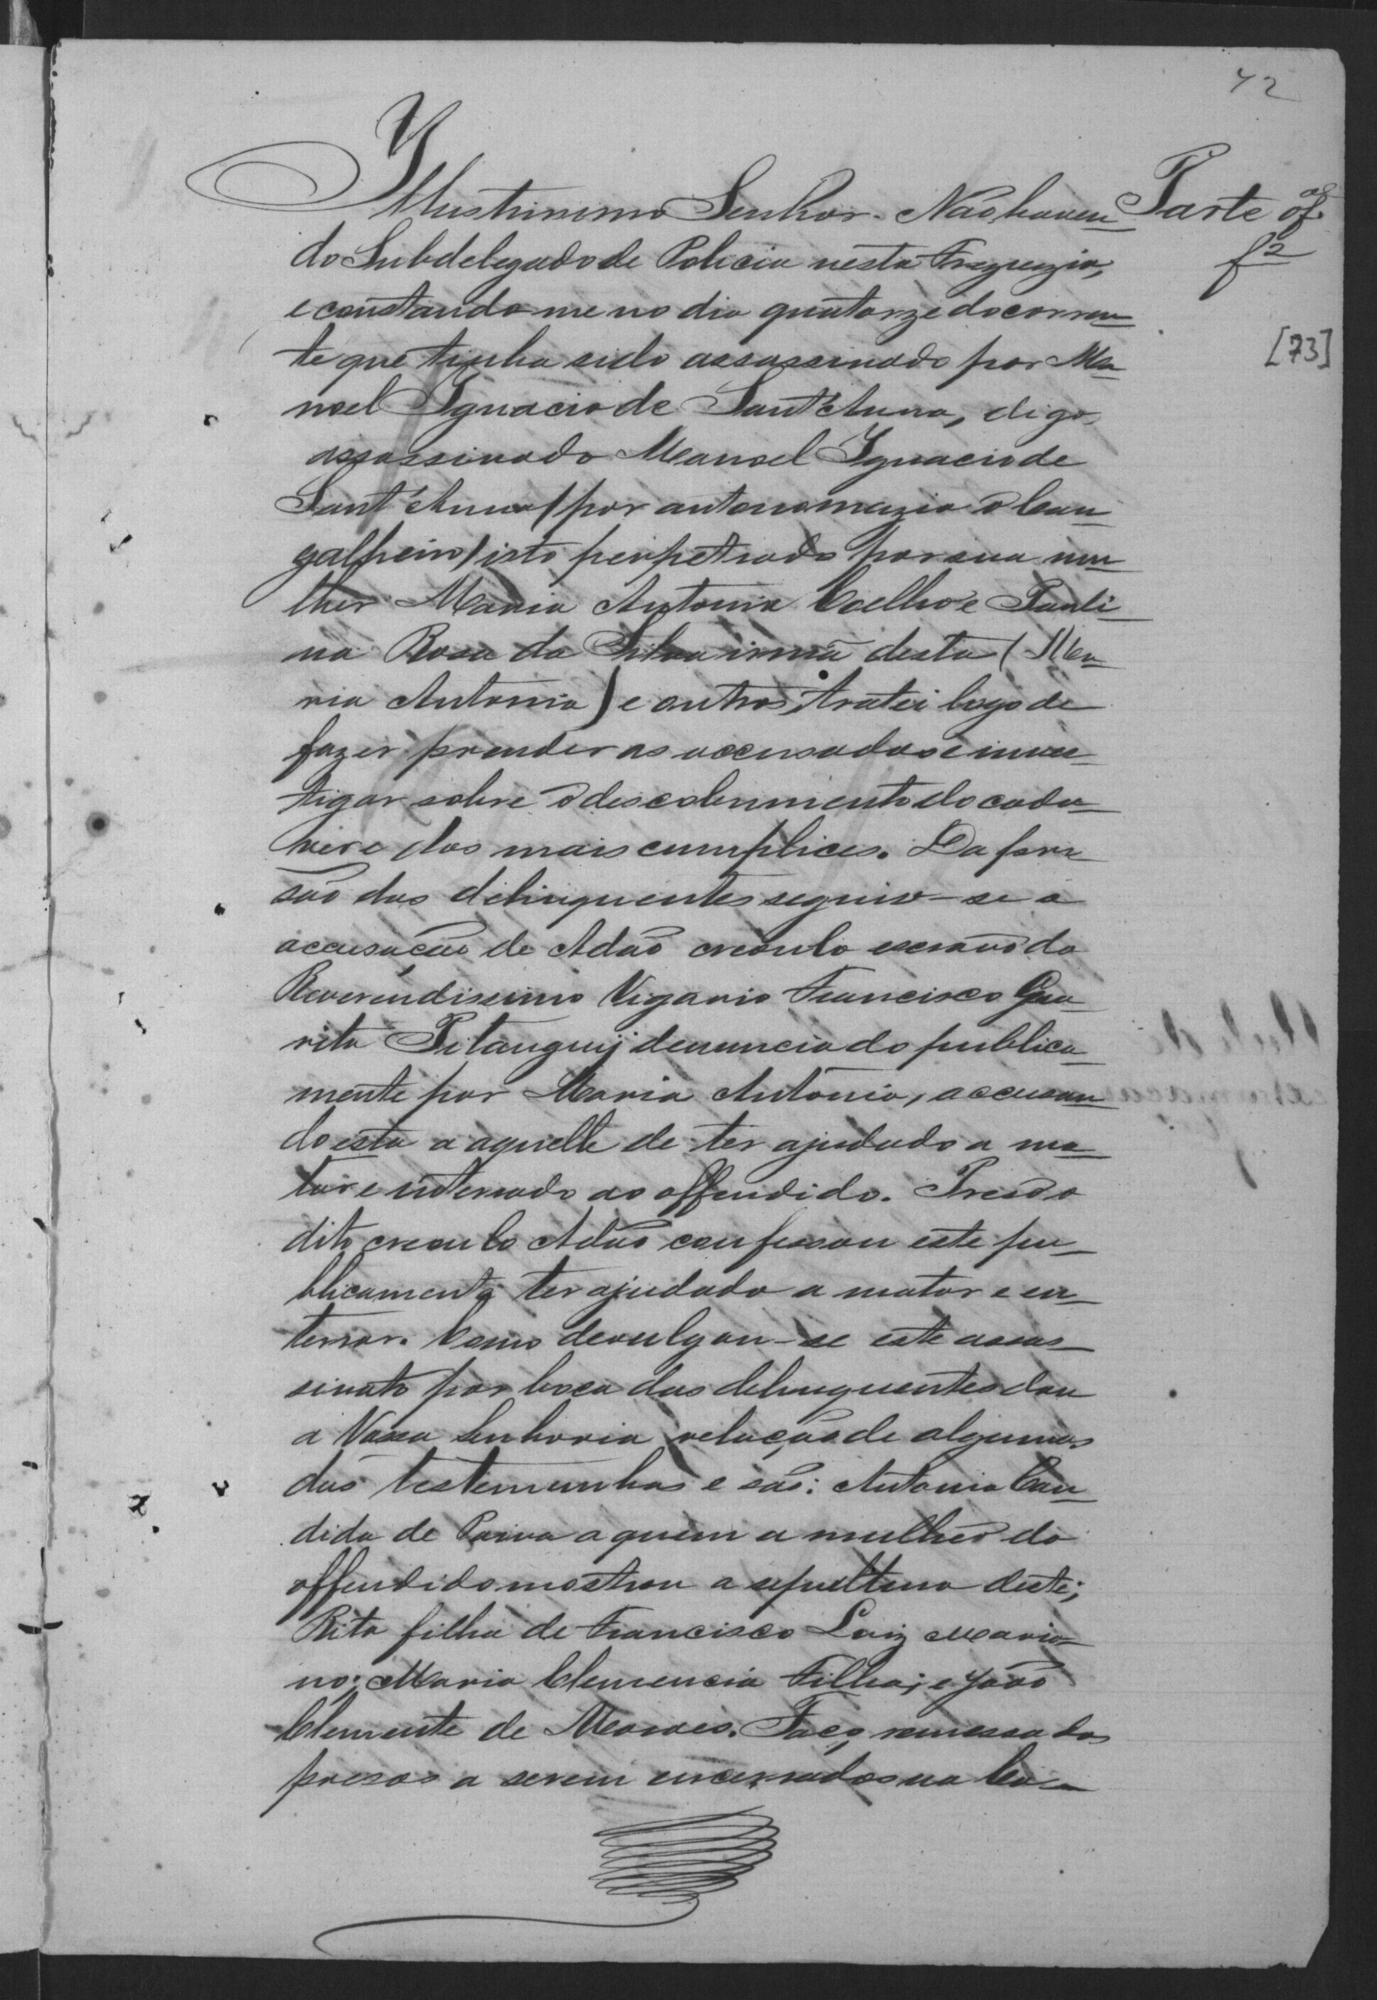 42
Illustrissimo Senhor. Não haven
Parte of.
f 2
[73]
do Subdelegado de Policia nesta Freguezia,
e constando me no dia quatorze do corren
te que tinha sido assassinado por Ma
noel Ignacio de Sant'Anna, digo
assassinado Manoel Ignacio de
Sant'Anna (por autonomazia o Can
galheiro) isto perpetrado por sua mu
lher Maria Antonia Coelho e Pauli
na Rosa da Silva irmã desta (Ma
ria Antonia) e outros, tratei logo de
fazer prender as accusadas e inves
tigar sobre o descobrimento do cada
ver e dos mais cumplices. Da pri
são das delinquentes seguio-se a
accusação de Adão creoulo escravo do
Reverendissimo Vigario Francisco Gua
rita Pitanguy denunciado publica
mente por Maria Antonia, accusan
do esta a aquelle de ter ajudado a ma
tar e enterrado ao offendido. Preso o
dito creoulo Adão confessou este pu
blicamente ter ajudado a matar e en
terrar. Como devulgou-se este assas
sinato por boca das delinquentes dou
a Vossa Senhoria relação de algumas
das testemunhas e são: Antonia Can
dida de Paiva a quem a mulher do
offendido mostrou a sepultura deste;
Rita filha de Francisco Luiz Maria
no; Maria Clemencia Filha; e João
Clemente de Moraes. Faço remessa dos
presos a serem encerrados na Ca